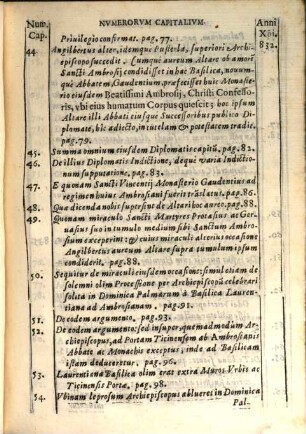 Num. Cap.
NVMERORVM CAPITALIVM.
Anni Xpi.
Priuilegio confirmat. pag. 77.
44. Angilbertus alter, idemque Pusterla, superiori Archi-
832.
episcopo succedit. Cumque aureum Altare ob amorē
Sancti Ambrosij condidisset in hac Basilica, nouum-
que Abbatem Gaudentium, præfecisset huic Monaste-
rio eiusdem Beatissimi Ambrosij, Christi Confesso-
ris, vbi eius humatum Corpus quiescit; hoc ipsum
Altare illi Abbati eiusque Successoribus publico Di-
plomate, hic adiecto, in tutelam & potestatem tradit.
pag. 79.
45. Summa omnium eiusdem Diplomatis capitū. pag. 82.
46. De illius Diplomatis Indictione, deque varia Indictio-
num supputatione, pag. 83.
47. E quamam Sancti Vincentij Monasterio Gaudentius ad
regimen huius Ambrosiani fuerit trāslatus. pag. 86.
48. Quæ dicenda nobis supersint de Altari hoc aureo. pag. 88.
49. Quonam miraculo Sancti Martyres Protasius ac Ger-
uasius suo in tumulo medium sibi Sanctum Ambro-
sium exceperint: & cuius miraculi alterius occasione
Angilbertus aureum Altare supra tumulum ipsum
condiderit. pag. 88.
50. Sequitur de miraculi eiusdem occasione: simul etiam de
solemni olim Processione per Archiepiscopū celebrari
solita in Dominica Palmarum à Basilica Laurem-
tiana ad Ambrosianam. pag. 91.
51. De eodem argumento. pag. 93.
52. De eodem argumento: sed insuper quemadmodum Ar-
chiepiscopus, ad Portam Ticinensem ab Ambrosiapis
Abbate ac Monachis exceptus, inde ad Basilicam
istam deduceretur. pag. 96.
53. Laurentiana Basilica olim erat extra Muros Vrbis ac
Ticinensis Porta. pag. 98.
54. Vbinam leprosum Archiepiscopus ablueret in Dominica
Pal-